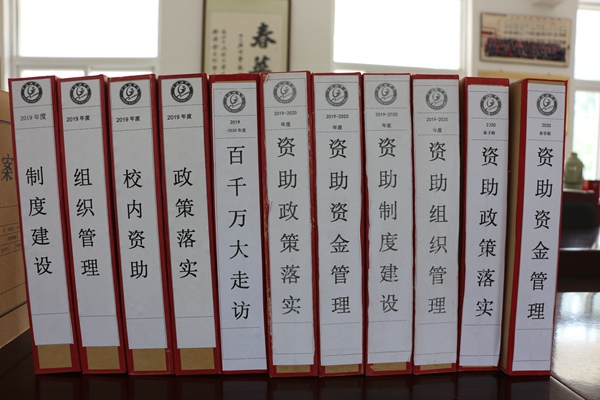 春华
2019 年度
制度建设
2019 年度
组织管理
2019 年度
校内资助
2019 年度
政策落实
2019
-2020年度
百千万大走访
2019-2020
年度
资助政策落实
2019-2020
年度
资助资金管理
2019-2020
年度
资助制度建设
2019-2020
年度
资助组织管理
2020
春学期
资助政策落实
2020
春学期
资助资金管理
案